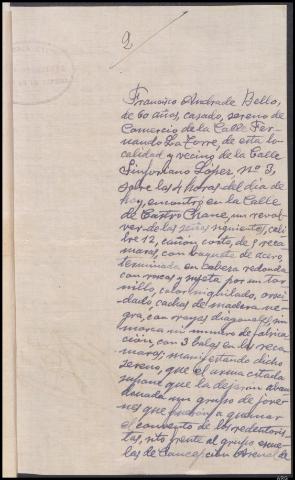 2
Francisco Andrade Bello,
de 60 años, casado, sereno de
Comercio de la Calle Fer-
nando La Torre, de esta lo-
calidad y vecino de la Calle
Sinforiano Lopez, nº 3,
sobre las 4 horas del dia de
hoy, encontró en la Calle
de Castro Chané, un revol-
ver de las señas siguientes, cali
bre 12, cañon corto, de 5 recá
maras, con baqueta de acero,
terminada en cabeza redonda
con roscas y sujeta por un tor
nillo, color niquelado, oxi
dado, cachas de madera ne
gra, con rayas diagonales, sin
marca ni numero de fabrica
ción, con 3 balas en las reca
maras; manifestando dicho
sereno, que el arma citada
supone que la dejaron aban
donada un grupo de jove
nes que fueron a quemar
el convento de los redentoris
tas, sito frente al grupo escue
las de Concepcion Arenal de